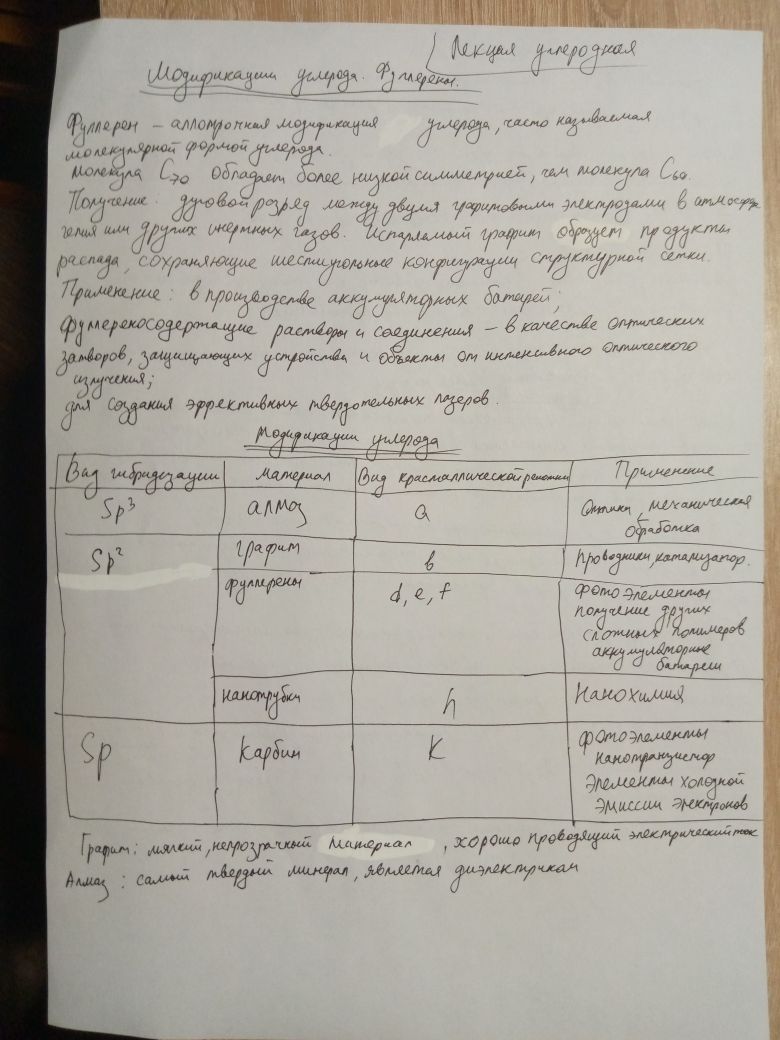 Лекция углеродная
Модификации углерода. Фуллерены.
Фуллерен – аллотропная модификация углерода, часто называемая
молекулярной формой углерода.
молекула C70 обладает более низкой симметрией, чем молекула C60.
Получение: дуговой разряд между двумя графитовыми электродами в атмосфере
гелия или других инертных газов. Испаряемый графит образует продукты
распада, сохраняющие шестиугольные конфигурации структурной сетки.
Применение: в производстве аккумуляторных батарей;
фуллереносодержащие растворы и соединения – в качестве оптических
затворов, защищающих устройства и объекты от интенсивного оптического
излучения;
для создания эффективных твердотельных лазеров.
Модификации углерода
Вид гибридизации материал Вид кристаллической решетки Применение
Sp3 алмаз a Оптика, механическая
обработка
Sp2 графит b Проводники, катализатор.
фуллерены d, e, f фотоэлементы
получение других
сложных полимеров
аккумуляторные
батареи
нанотрубки h Нанохимия
Sp карбин K фотоэлементы
нанотранзистор
элементы холодной
эмиссии электронов
Графит: мягкий, непрозрачный материал, хорошо проводящий электрический ток
Алмаз: самый твердый минерал, является диэлектриком